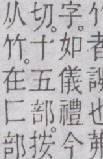 者
字。如儀禮今
切。十五部。按
从竹。在匚部